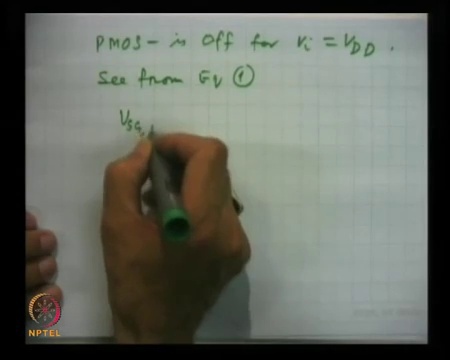 PMOS - is off for vi = VDD .
See from Eq ①
VSG,
NPTEL